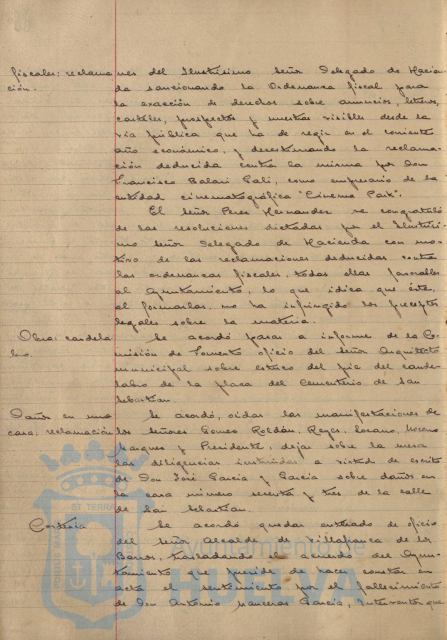 fiscales: reclama-
ción.
nes del Ilustrísimo Señor Delegado de Hacien-
da sancionando la Ordenanza fiscal para
la exacción de derechos sobre anuncios, letreros,
carteles, prospectos y muestras visibles desde la
vía pública que ha de regir en el corriente
año económico, y desestimando la reclama-
ción deducida contra la misma por Don
Francisco Balari Galí, como empresario de la
entidad cinematográfica "Cinema Park".
El Señor Perez Hernandez se congratuló
de las resoluciones dictadas por el Ilustrísi-
mo Señor Delegado de Hacienda con mo-
tivo de las reclamaciones deducidas contra
las ordenanzas fiscales, todas ellas favorables
al Ayuntamiento, lo que idica que éste,
al formarlas, no ha infringido los preceptos
legales sobre la materia.
Obras: candela-
bro.
Se acordó pasar a informe de la Co-
misión de Fomento oficio del Señor Arquitecto
municipal sobre estado del pie del cande-
labro de la plaza del Cementerio de San
Sebastián.
Daños en una
casa: reclamación
Se acordó, oidas las manifestaciones de
los Señores Gomez Roldán, Reyes, Lozano, Moreno
Marquez y Presidente, dejar sobre la mesa
las diligencias instruidas a virtud de escrito
de Don José García y García sobre daños en
la casa número sesenta y tres de la calle
de San Sebastián.
Cortesía
Se acordó quedar enterado de oficio
del Señor Alcalde de Villafranca de los
Barros, trasladando el acuerdo del Ayun-
tamiento que preside de hacer constar en
acta el sentimiento por el fallecimiento
de Don Antonio García, Interventor que
HUELVA